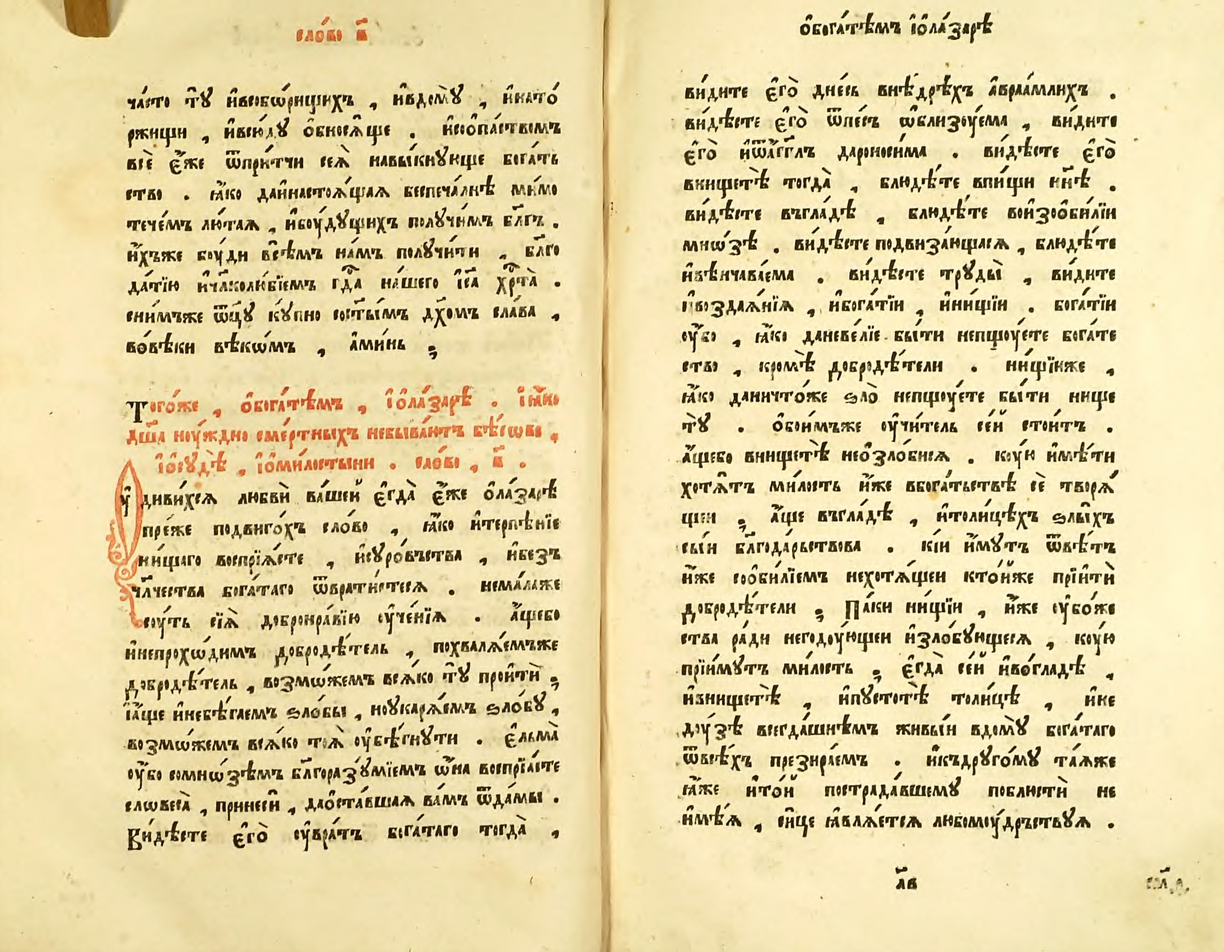 сло́во в҃
ча́сто тꙋ̀ и҆всобѡ́рищихъ , и҆вдомꙋ̀ , и҆натⷪ҇
ржищи , и҆всю́дꙋ ѡ҆бнося́ще . и҆сопа́ствомъ
всѐ є҆́же ѿпри́тчи сеѧ̀ навы́кнꙋвше бога́тъ
ство . ꙗ҆́ко данастоѧ́щаѧ беспеча́лнѣ ми́мо
тече́мъ лю́таѧ , и҆боу́дꙋщихъ полꙋ́чимъ бл҃гъ .
и҆́хъже боу́ди всѣ́мъ на́мъ полꙋчи́ти , бл҃го
да́тїю и҆чл҃колю́бїемъ гд҇а на́шего і҆с҃а хр҇та̀ .
сни́мъже ѿц҃ꙋ кꙋ́пно состы́мъ дх҃омъ сла́ва ,
вовѣ́ки вѣкѡ́мъ , а҆ми́нь ;
Того́же , ѡ҆бога́тѣмъ , і҆ѡла́зарѣ . і҆ꙗ҆́ко
дш҃а ноу́ждно сме́ртныхъ небыва́ютъ бѣ́сове ,
і҆ѡсꙋдѣ̀ , і҆ѡми́лостыни . сло́во , в҃ .
Оу҆диви́хсѧ любвѝ ва́шей є҆гда̀ є҆́же ѡ҆ла́зарѣ
пре́же подвиго́хъ сло́во , ꙗ҆́ко и҆терпѣ́нїе
ни́щаго воспрїѧ́сте , и҆суро́въства , и҆безъ
чл҃чества бога́таго ѿврати́стесѧ . нема́лаже
соу́ть сїѧ̀ доброинра́вїю оу҆че́нїѧ . а҆́щебо
и҆непрохѡ́димъ добродѣ́тель , похвалѧ́емъже
добродѣ́тель , возмо́жемъ всѧ́ко тꙋ̀ проитѝ ;
і҆а҆́ще и҆небѣ́гаемъ ѕло́бы , ноукарѧ́емъ ѕло́бꙋ ,
возмо́жемъ всѧ́ко тоѧ̀ оу҆бѣ́гнꙋти . є҆льма̀
оу҆́бо сомно́зѣмъ бл҃горазꙋ́мїемъ ѡ҆́на воспрїѧ́сте
словеса̀ , принесѝ , даѡста́вшаѧ ва́мъ ѿда́мы .
Ви́дѣсте є҆го̀ оу҆вра́тъ бога́таго тогда̀ ,
ѡ҆бога́тѣмъ і҆ѡла́зарѣ
ви́дите є҆го̀ дне́сь внѣ́дрѣхъ а҆враа́млихъ .
ви́дѣсте є҆го̀ ѿпе́съ ѡ҆бли́зоуема , ви́дите
є҆го̀ и҆ѿа҆́гг҃лъ дароноси́ма . ви́дѣсте є҆го̀
внищетѣ̀ тогда̀ , блюдѣ́те впи́щи нн҃ѣ .
ви́дѣсте въгла́дѣ , блюдѣ́те воизоби́лїи
мно́зѣ . ви́дѣсте подвиза́ющасѧ , блюдѣ́те
и҆вѣнчава́ема . ви́дѣсте трꙋды̀ , ви́дите
и҆возда́ѧнїѧ , и҆бога́тїи , и҆ни́щїи . бога́тїи
оу҆́бо , ꙗ҆́ко даневе́лїе бы́ти непщꙋ́ете бога́те
ство , кромѣ̀ добродѣ́тели . ни́щїиже ,
ꙗ҆́ко даничто́же ѕло̀ непщꙋ́ете бы́ти нище
тꙋ̀ . ѡ҆бои́мъже оу҆чи́тель се́й стои́тъ .
а҆́щебо внищетѣ̀ неѡ҆зло́бисѧ . коую и҆мѣ́ти
хотѧ́тъ ми́лость и҆́же вбога́тьствѣ сѐ творѧ́
щеи ; а҆́ще въгла́дѣ , и҆толи́цѣхъ ѕлы́хъ
сы́и бл҃года́рьствова . кі́и и҆́мꙋтъ ѿвѣ́тъ
и҆́же соби́лїемъ нехотѧ́щеи кто́йже прїитѝ
добродѣ́тели ; Па́ки ни́щїи , и҆́же оу҆бо́же
ства ра́ди негодоу́ющеи и҆зло́бꙋющесѧ , коую
прїи́мꙋтъ ми́лость ; є҆гда̀ се́й и҆вогла́дѣ ,
и҆внищетѣ̀ , и҆пꙋстотѣ̀ толи́цѣ , и҆не
доу́зѣ всегда́шнѣмъ живы́и вдомꙋ̀ бога́таго
ѿвсѣ́хъ презира́емъ . и҆къдрꙋго́мꙋ та́ѧже
ꙗ҆́же и҆то́й пострада́вшемꙋ поблї́сти не
и҆мѣ́ѧ , си́це ꙗ҆влѧ́етсѧ любомоу́дрьствꙋѧ .
л҃в